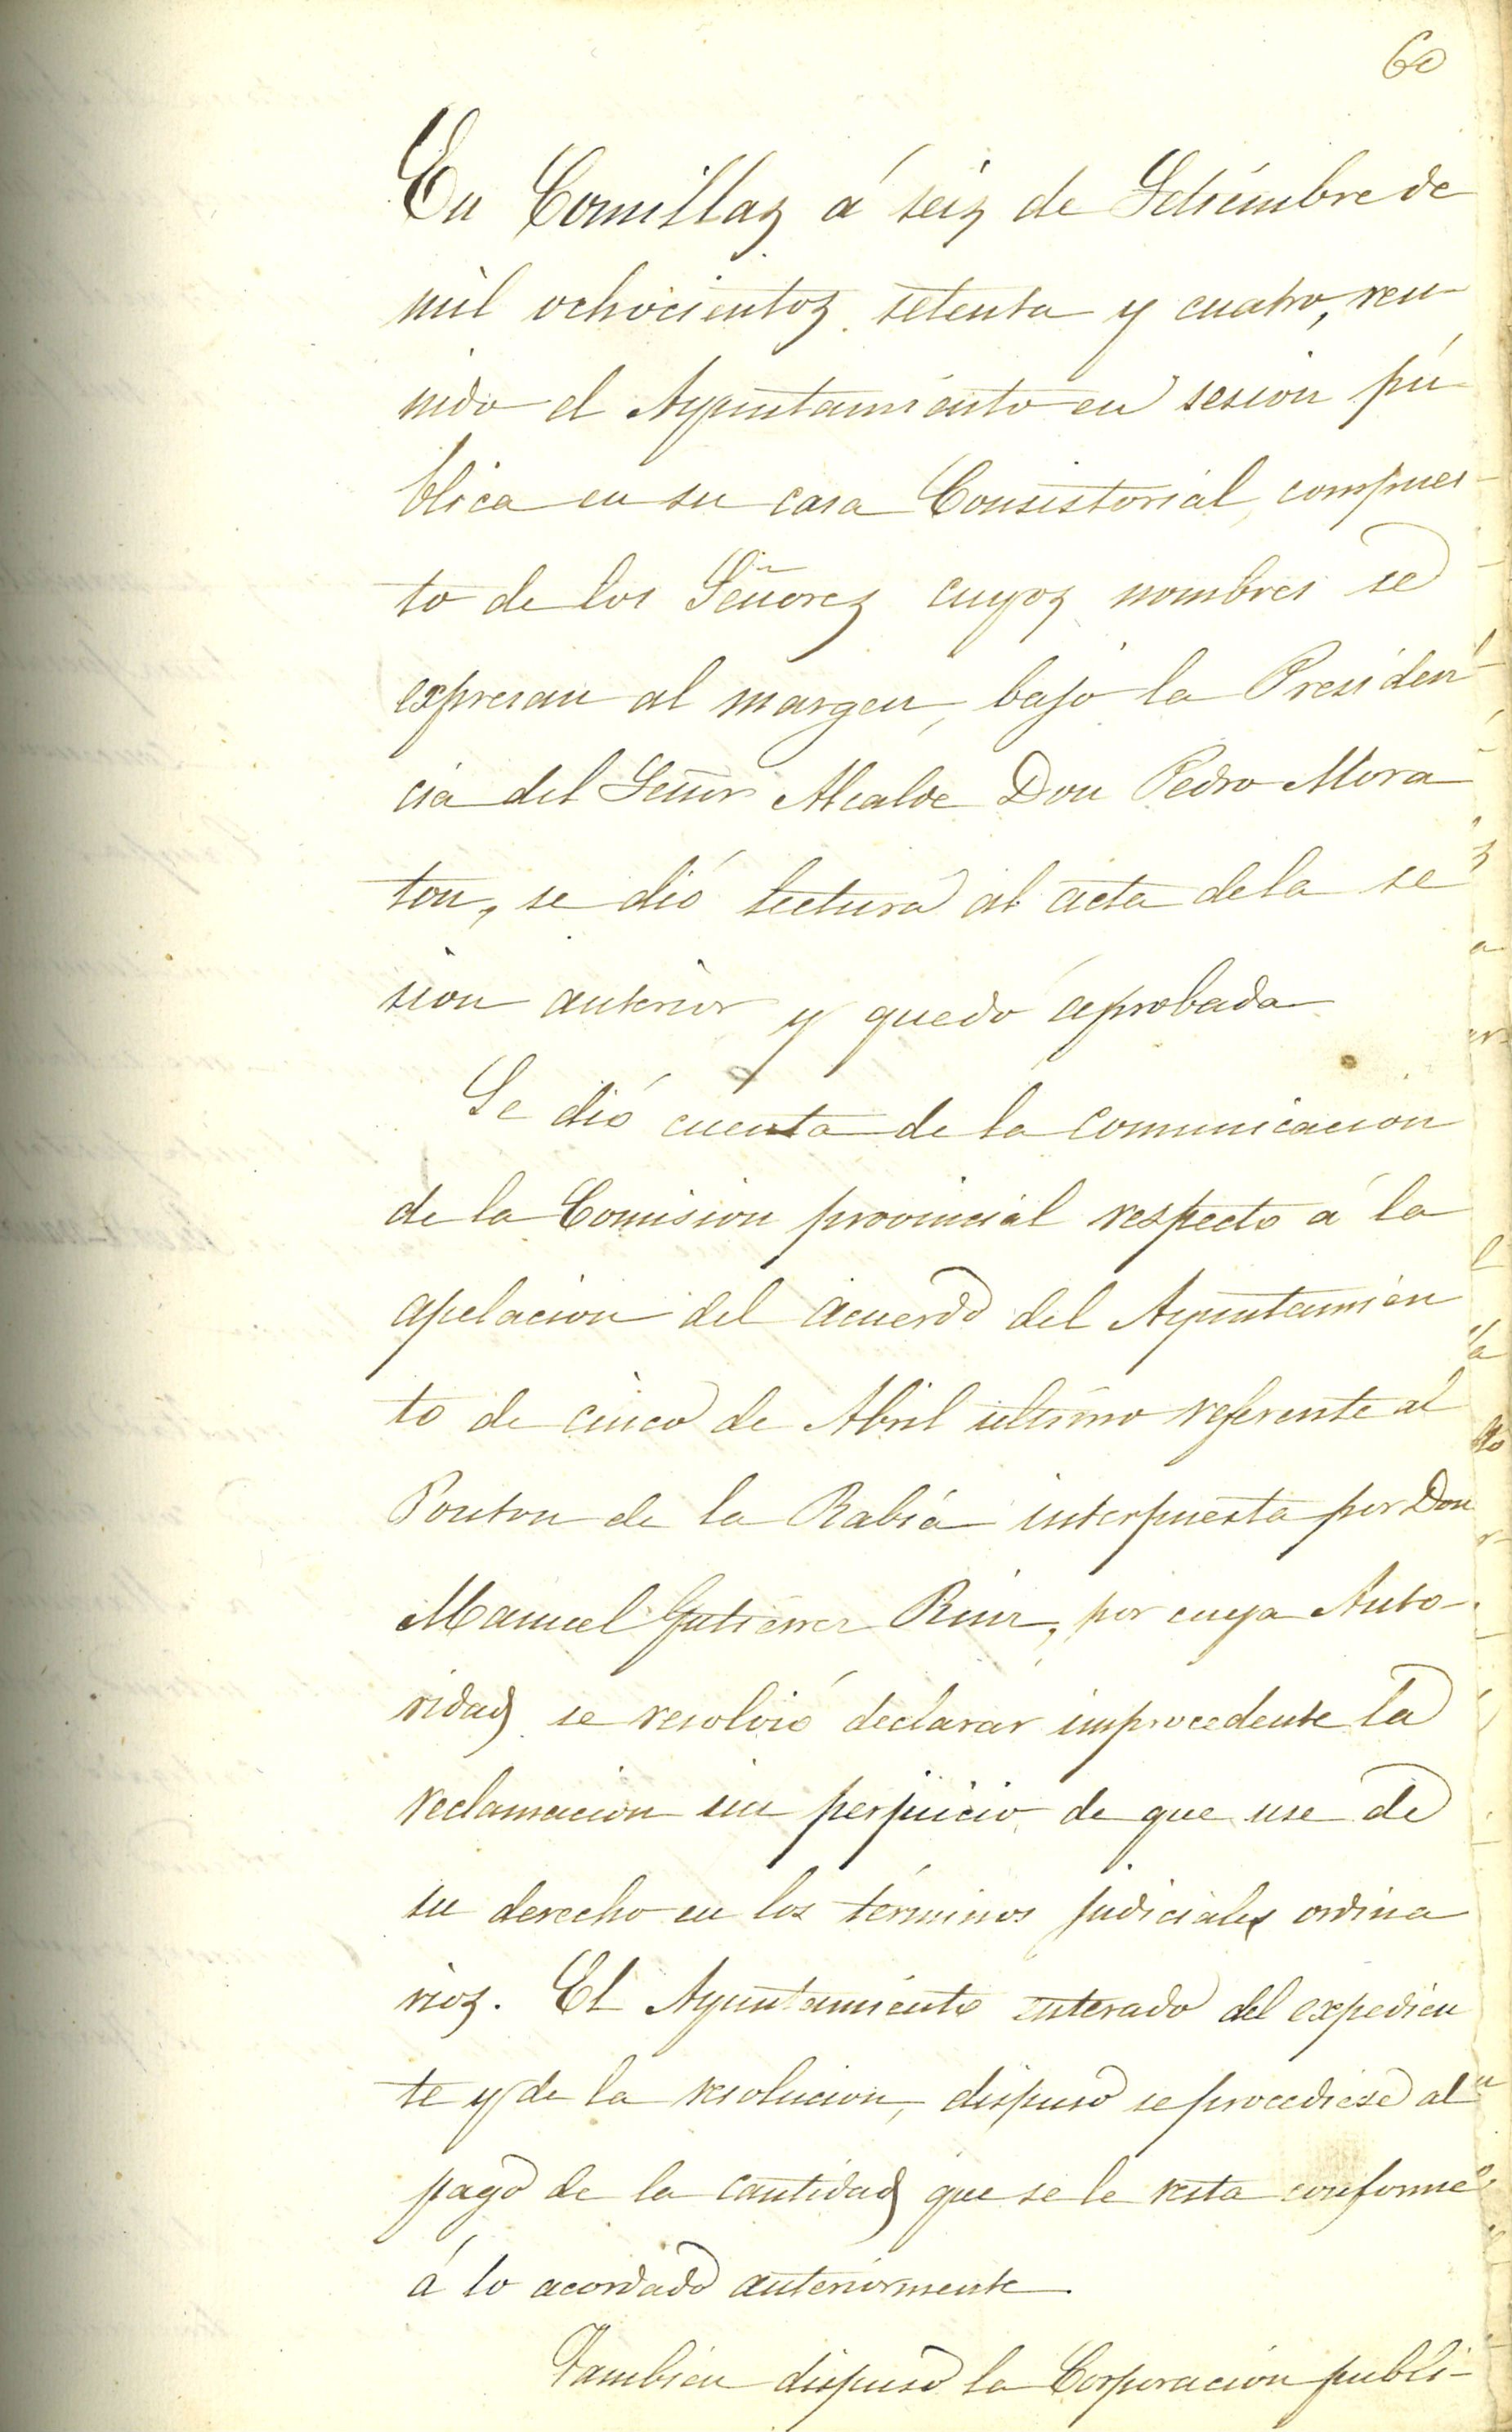 60
En Comillas á seis de Setiembre de
mil ochocientos setenta y cuatro, reu-
nido el Ayuntamiento en sesion pú-
blica en su casa Consistorial, compues-
to de los Señores cuyos nombres se
expresan al margen, bajo la Presiden-
cia del Señor Alcalde Don Pedro Mora
ton, se dió lectura al acta de la se
sion anterior y quedó aprobada
Se dió cuenta de la comunicacion
de la Comision provincial respecto á la
apelacion del acuerdo del Ayuntamien
to de cinco de Abril último referente al
Ponton de la Rabia interpuesta por Don
Manuel Gutierrez Ruiz, por cuya Auto-
ridad se resolvió declarar improcedente la
reclamacion sin perjuicio de que use de
su derecho en los términos judiciales ordina
rios. El Ayuntamiento enterado del expedien
te y de la resolucion, dispuso se procediese al
pago de la cantidad que se le resta conforme
á lo acordado anteriormente.
Tambien dispuso la Corporacion publi-